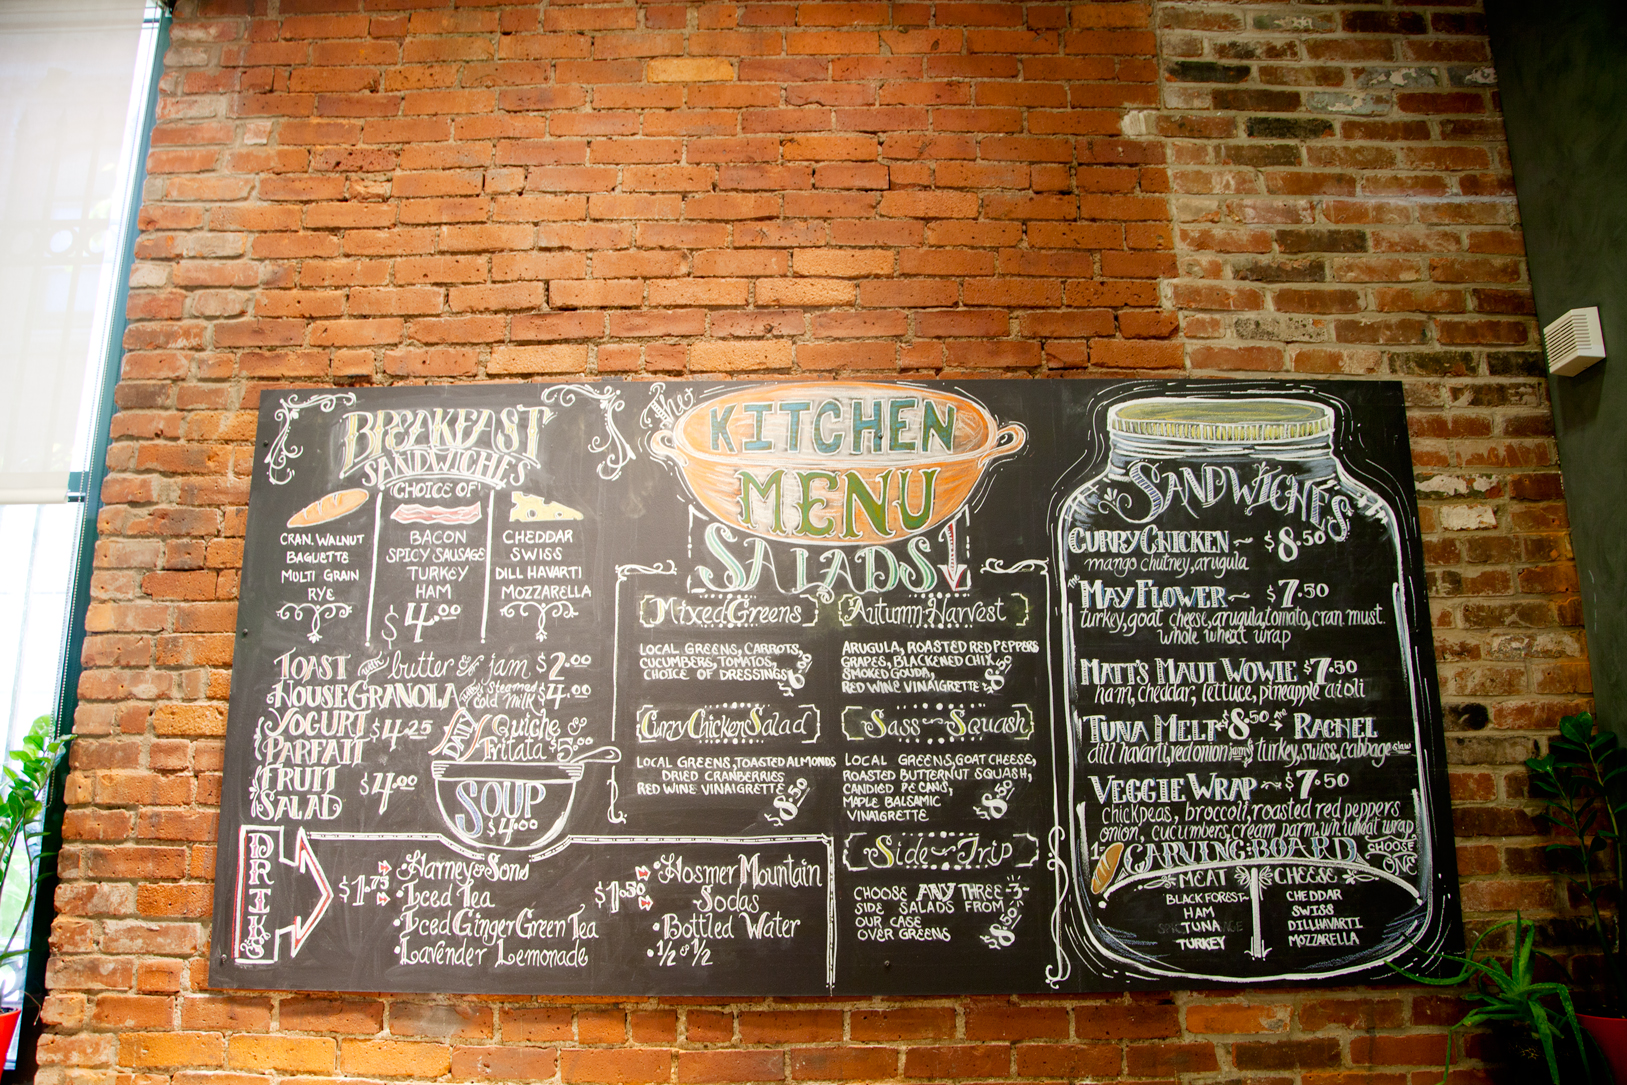 BREAKFAST
SANDWICHES
(CHOICE OF)
CRAN. WALNUT
BAGUETTE
MULTI GRAIN
RYE
BACON
SPICY SAUSAGE
TURKEY
HAM
$4.00
CHEDDAR
SWISS
DILL HAVARTI
MOZZARELLA
TOAST with butter & jam $2.00
HOUSE GRANOLA with steamed cold milk $4.00
YOGURT
PARFAIT
$4.25
FRUIT
SALAD
$4.00
DAILY
Quiche &
Fritata $5.00
SOUP
$4.00
DRINKS
$1.75
•Harney & Sons
•Iced Tea
•Iced Ginger Green Tea
•Lavender Lemonade
$1.50
•Hosmer Mountain
Sodas
•Bottled Water
•1/2 & 1/2
The
KITCHEN
MENU
SALADS
Mixed Greens
LOCAL GREENS, CARROTS,
CUCUMBERS, TOMATOS,
CHOICE OF DRESSINGS
Curry Chicken Salad
LOCAL GREENS, TOASTED ALMONDS
DRIED CRANBERRIES
RED WINE VINAIGRETTE
$8.50
Autumn Harvest
ARUGULA, ROASTED RED PEPPERS
GRAPES, BLACKENED CHIX,
SMOKED GOUDA,
RED WINE VINAIGRETTE
$8.50
Sass-Squash
LOCAL GREENS, GOAT CHEESE,
ROASTED BUTTERNUT SQUASH,
CANDIED PECANS,
MAPLE BALSAMIC
VINAIGRETTE
$8.50
Side-Trip
CHOOSE ANY THREE -3-
SIDE SALADS FROM
OUR CASE
OVER GREENS
$8.50
SANDWICHES
CURRY CHICKEN ~ $8.50
mango chutney, arugula
The MAY FLOWER ~ $7.50
turkey, goat cheese, arugula, tomato, cran. must.
whole wheat wrap
MATT'S MAUI WOWIE $7.50
ham, cheddar, lettuce, pineapple aioli
TUNA MELT $8.50 The RACHEL
dill havarti, red onion jam turkey, swiss, cabbage slaw
VEGGIE WRAP ~ $7.50
chickpeas, broccoli, roasted red peppers
onion, cucumbers, cream parm, wh. wheat wrap
CARVING BOARD
CHOOSE
ONE
MEAT
BLACK FOREST
HAM
TUNA
TURKEY
CHEESE
CHEDDAR
SWISS
DILL HAVARTI
MOZZARELLA